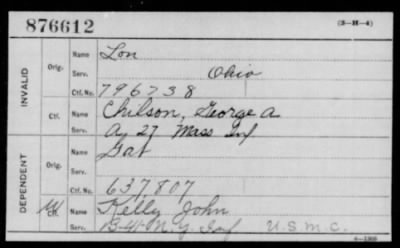 876612 (3-H-4)
INVALID
Orig. Name Lon
Serv. Ohio
Ctf. No. 796738
Ctf. Name Chilson, George A
Serv. A, 27 Mass Inf
DEPENDENT
Orig. Name
Serv.
Ctf. No. 637807
Ctf. Name Kelly John
Serv. B-41-N.Y. Inf U.S.M.C.